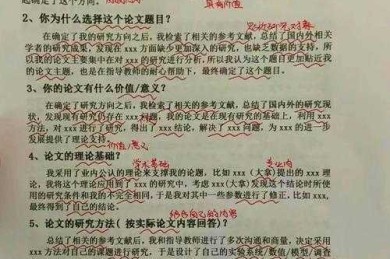 2、你为什么选择这个论文题目？
在确定了我的研究方向之后，我检索了相关的参考文献，总结了国内外相关
学者的研究成果，发现在 xxx 方面缺少更加深入的研究，也缺乏数据的支持，所
以我的论文主要集中在对 xxx 的研究进行分析，所以我认为这个题目更加贴近我
的论文主题，也是在指导教师的耐心帮助下，最终确定了这个题目。
3、你的论文有什么价值/意义？
在确定了研究方向之后，我检索了相关的参考文献，总结了国内外的研究现
状，发现现有研究仍存在 xxx 问题，我的论文是在现有研究的基础上，利用 xxx
方法，对 xxx 进行了研究，得出了 xxx 结论，解决了 xxx 问题，为 xxx 的进一步
发展提供了理论支持。
价值/意义
4、论文的理论基础？
学术基础
我采用了业内公认的理论来支撑我的论题，比如 xxx（大拿）提出的 xxx 理
论，我将这个理论应用到了 xxx 的研究中，考虑 xxx（大拿）发现这个结论时所使
用的研究条件和我的不完全相同，于是我对其中一些参数进行了修正，比如 xxx，
最终得到了自己的结论。
结合自己的内容
5、论文的研究方法（按实际论文内容回答）？
总结了相关的参考文献后，我和指导教师进行了多次沟通和商量，决定采用
xxx 方法对自己的课题进行研究，于是设计了自己的实验系统/数值/模型/调查